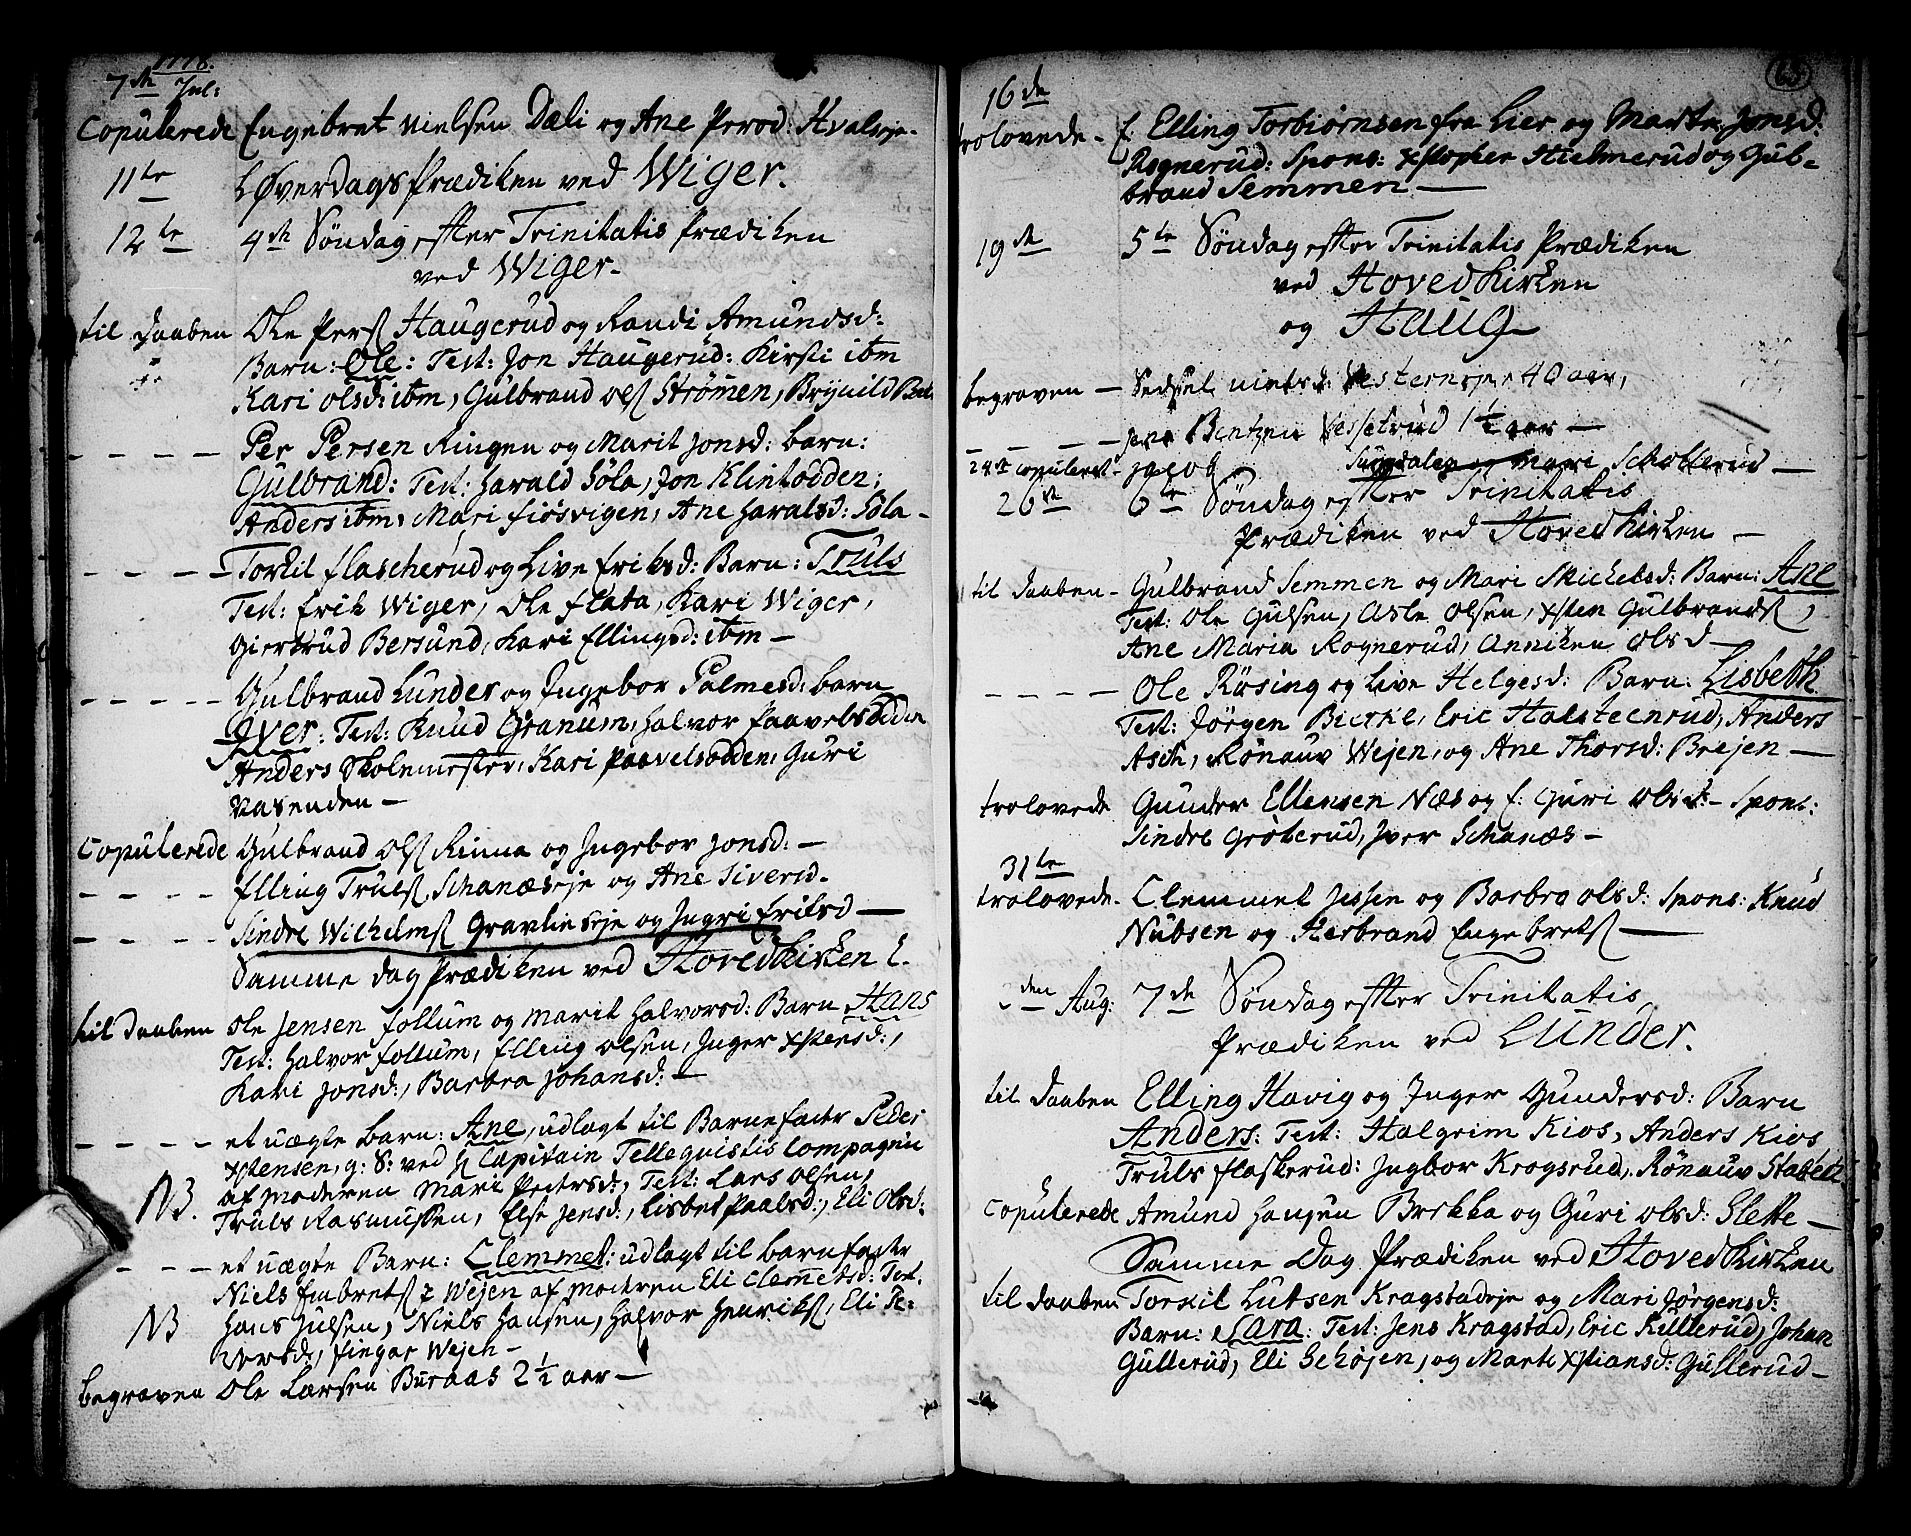 1778.
7de Jul:
Copulerede Engebret Nielsen Dæli og Ane Persd: Hvalseje-
11te Løverdags Prædiken ved Wiger.
12te 4de Søndag efter Trinitatis Prædiken
ved Wiger-
til Daaben Ole Pers Haugerud og Randi Amundsd:
Barn: Ole: Test: Jon Haugerud: Kirsti ibm
Kari olsd: ibm, Gulbrand ols Strømen, Brynild
- - - - Per Persen Ringen og Marit Jonsd: barn:
Gulbrand: Test: Harald Sola, Jon Klintodden;
Anders ibm, Mari fiøsvigen, Ane Haralsd: Sola -
- - - - Torkil flascherud og Live Eriksd: Barn: Truls
Test: Erik Wiger, Ole flata, Kari Wiger,
Giertrud Bersund, Kari Ellingsd: ibm -
- - - - Gulbrand Lunder og Ingebor Palmesd: barn
Iver: Test: Knud Granum, Halvor Paavelsodden
Anders Skolemester, Kari Paavelsodden, Guri
Vasenden -
Copulerede Gulbrand Ols Rinna og Ingebor Jonsd: -
- - - - Elling Truls Schanæseje og Ane Siversd-
- - - - Sindre Wilhelms Gravlieseje og Ingri Eriksd -
Samme dag Prædiken ved Hovedkirken
til Daaben Ole Jensen follum og Marit Halvorsd: Barn Hans
Test: Halvor follum, Elling olsen, Inger Xstensd:,
Kari Jonsd:, Barbra Johansd: -
- - - - et uægte barn: Ane, udlagt til Barnefader Peder
Xstensen, g: S: ved Capitain Tellequistis Compagnie
NB. af moderen Mari Pedersd:, Test: Lars olsen,
Truls Rasmussen, Else Jensd:, Lisbet Paalsd:, Eli Olsd:
- - - et uægte Barn: Clemmet: udlagt til barnefader
Niels Embrets Wejen af moderen Eli Clemmetsd: Test.
NB Hans Julsen, Niels Hansen, Halvor Henriks, Eli Pe:
dersd:, fingar Wejen -
begraven Ole Larsen Buraas 2½ aar -
63
16de
trolovede - Elling Torbiørnsen fra Lier og Marte Jonsd:
Rognerud: Spons: Xstopher Hielmerud og Gul-
brand Semmen -
19de 5te Søndag efter Trinitatis Prædiken
ved Hovedkirken
og Haug
begraven - Sedsel Nielsd: Vesterneje 40 aar,
- - - Bentzen Vessetrud 1½ aar -
24de copuleret Jacob Sugdalen og Mari Schollerud -
26de 6te Søndag efter Trinitatis
Prædiken ved Hovedkirken -
til Daaben - Gulbrand Semmen og Mari Michelsd: Barn: Ane
Test: Ole Gulsen, Asle Olsen, Xsten Gulbrands,
Ane Maria Rognerud, Anniken Olsd -
- - - - Ole Rusing og Live Helgesd: Barn: Lisbeth
Test: Jørgen Bierke, Eric Halsteenrud, Anders
Asch, Rønauv Wejen, og Ane Thorsd: Brejen -
trolovede Gunder Ellensen Næs og f: Guri Olsd: - Spons:
Sindre Grøterud, Iver Schanæs -
31te
trolovede - Clemmet Jessen og Barbro olsd: Spons: Knud
Nubsen og Herbrand Engebrets -
den Aug: 7de Søndag efter Trinitatis
Prædiken ved Lunder.
til Daaben Elling Havig og Inger Gundersd: Barn
Anders: Test: Halgrim Kios, Anders Kios
Truls flaskerud: Ingbor Krogsrud, Rønauv
Copulerede Amund Hansen Brekka og Guri Olsd: Slette -
Samme Dag Prædiken ved Hovedkirken
til Daaben Torkil Lubsen Kragstadeje og Mari Jørgensd:
Barn: Sara: Test: Jens Kragstad, Eric Killerud, Johan
Gullerud, Eli Schøjen, og Marte Xstiansd: Gullerud -